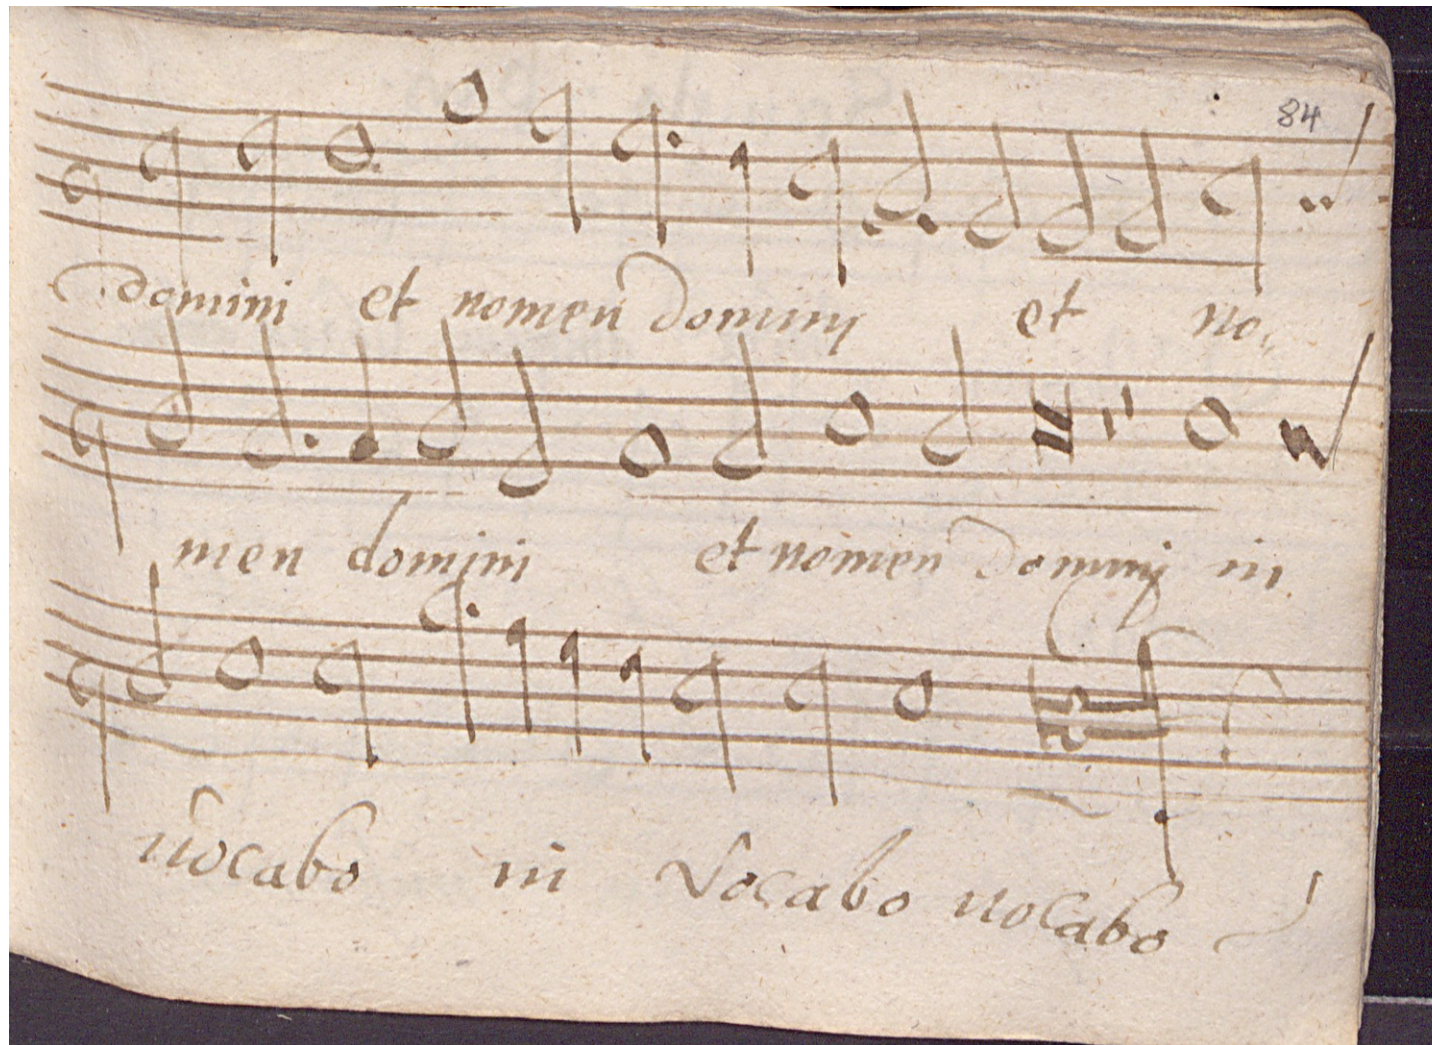 84
domini et nomen dominj et no,
men domini et nomen dominj in
uocabo in Vocabo uocabo